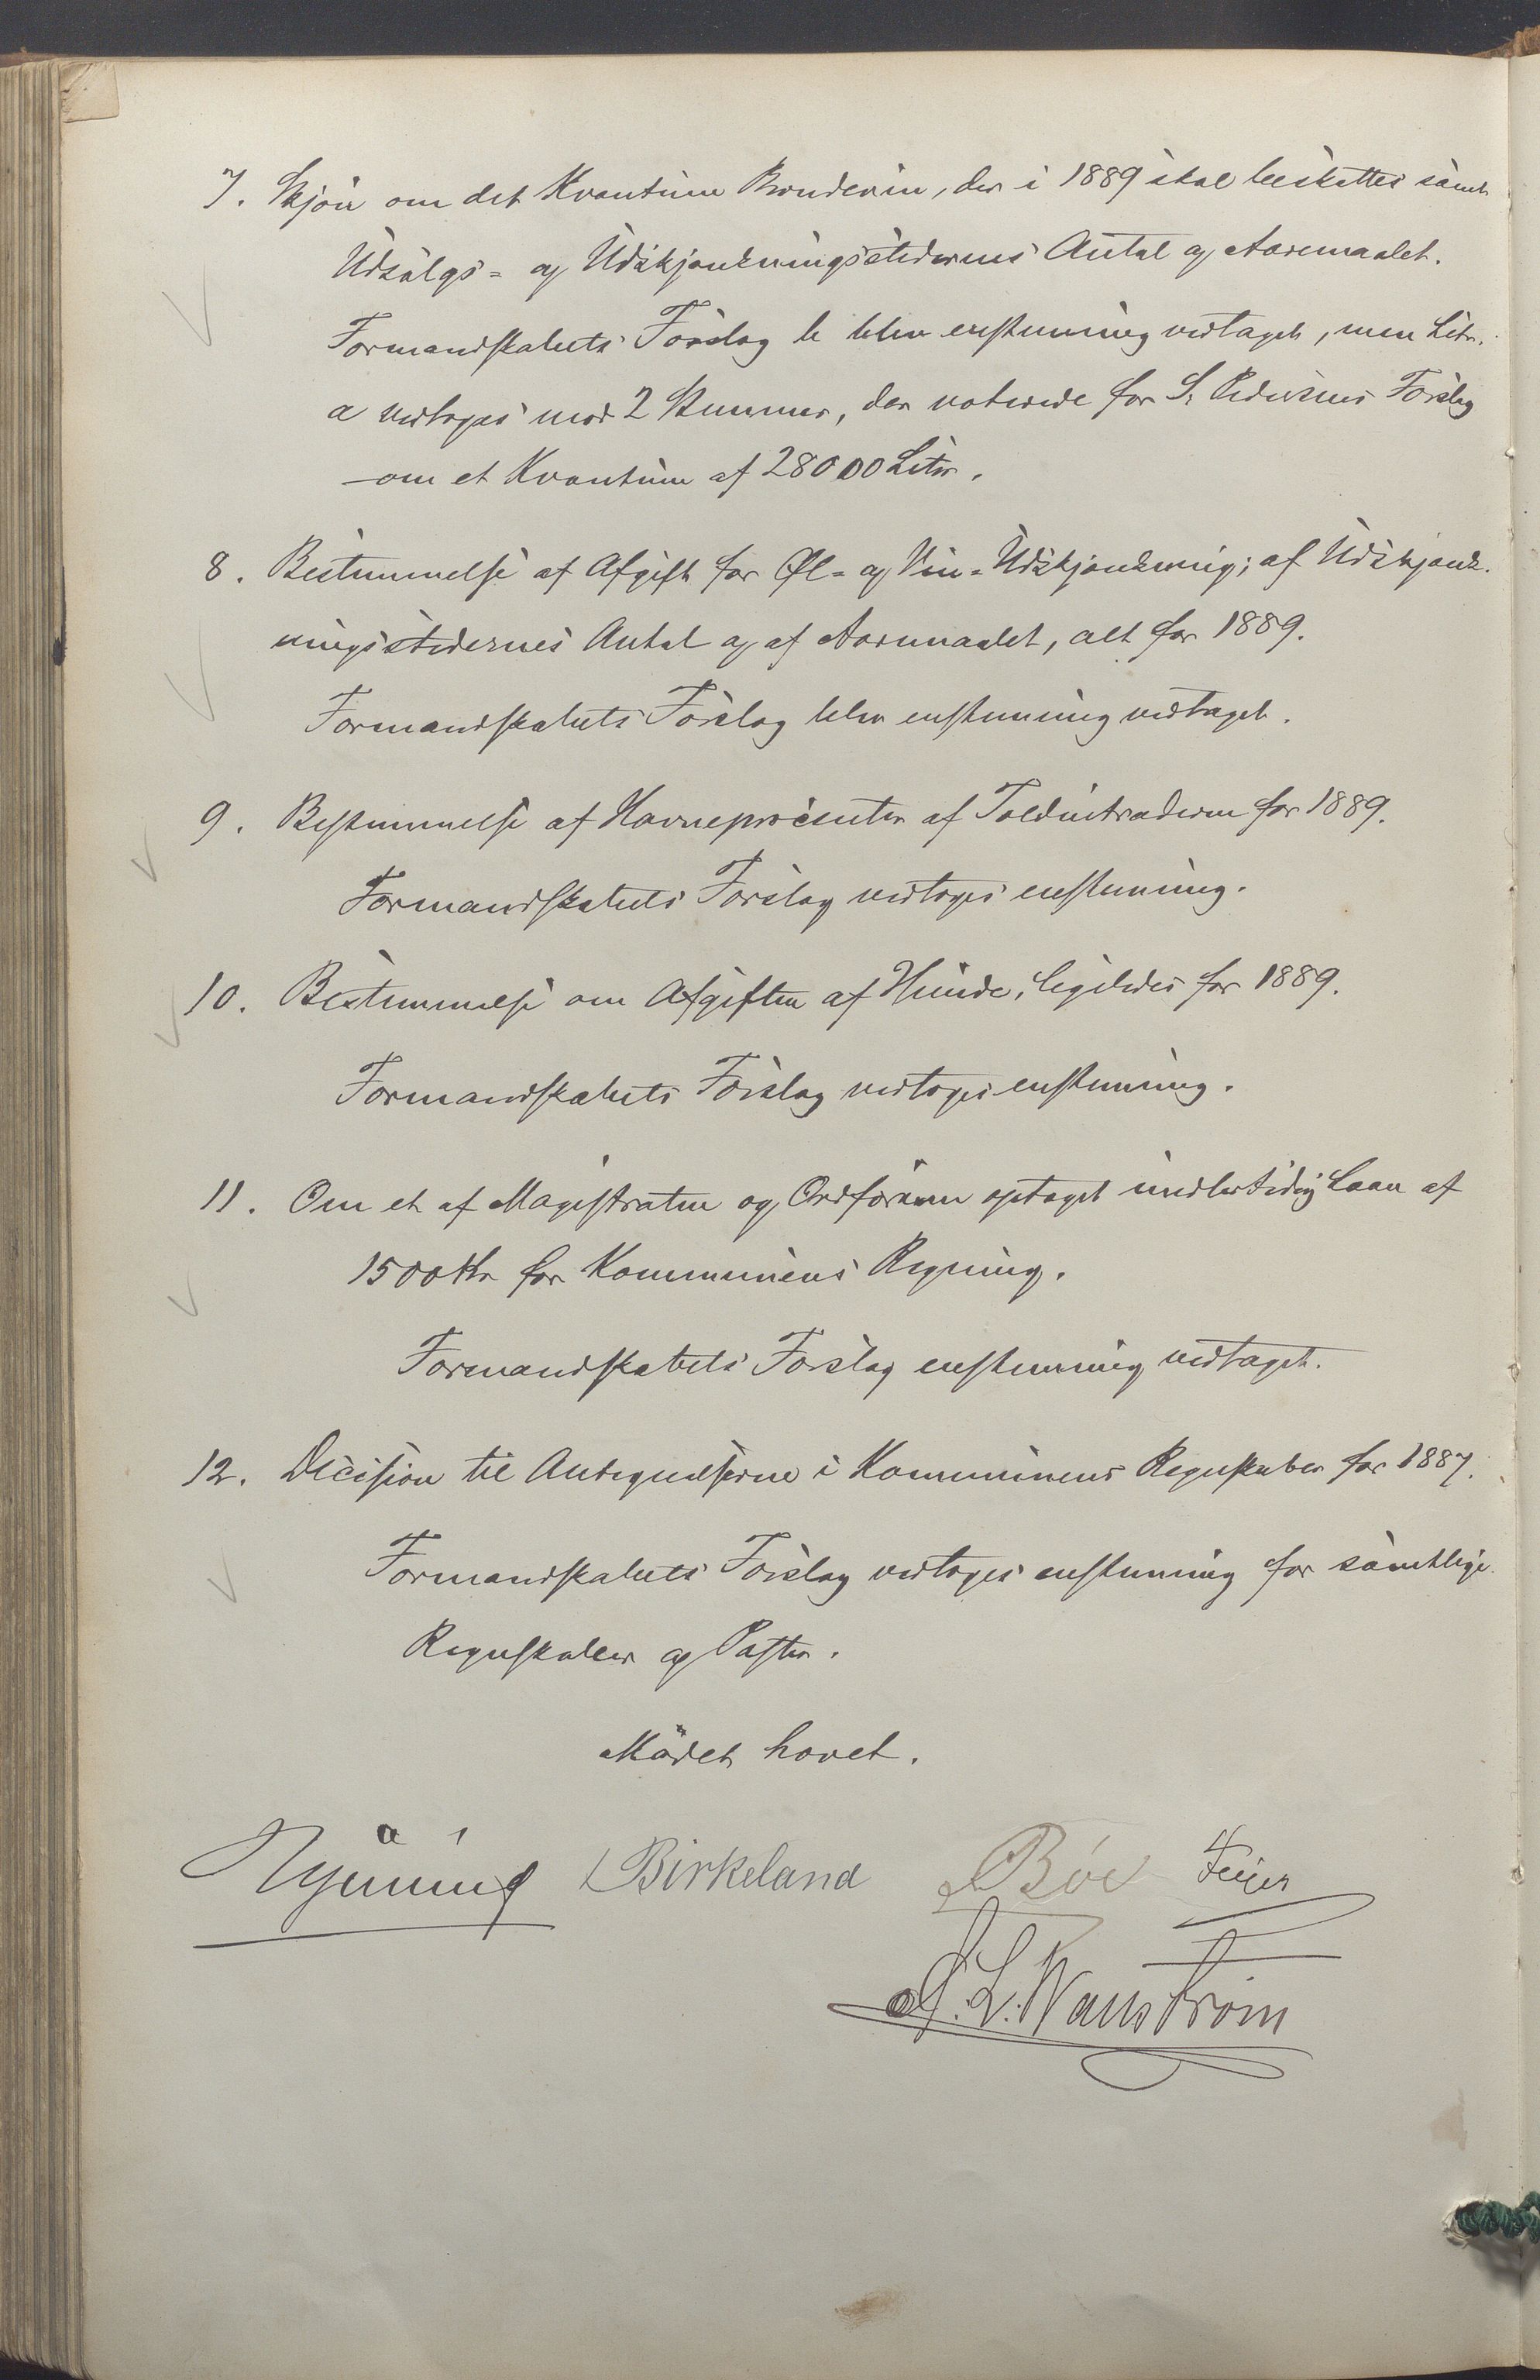 7. Skjøn om det Kvantum Brændevin, der i 1889 skal beskattes samt
Udsalgs- og Udskjænkningsstedernes Antal og Aaremaalet.
Formandskabets Forslag b blev enstemmig vedtaget, men Litr.
a vedtoges mod 2 Stemmer, der voterede for S. Pedersens Forslag
om et Kvantum af 28000 Liter.
8. Bestemmelse af Afgift for Øl- og Vin-Udskjænkning; af Udskjænk-
ningsstedernes Antal og af Aaremaalet, alt for 1889.
Formandskabets Forslag blev enstemmig vedtaget.
9. Bestemmelse af Havneprocenten af Toldintraderne for 1889.
Formandskabets Forslag vedtoges enstemmig.
10. Bestemmelse om Afgiften af Hunde, ligeledes for 1889.
Formandskabets Forslag vedtoges enstemmig.
11. Om et af Magistraten og Ordføreren optaget midlertidig Laan af
1500 Kr for Kommunens Regning.
Formandskabets Forslag enstemmig vedtaget.
12. Decision til Antegnelserne i Kommunens Regnskaber for 1887.
Formandskabets Forslag vedtoges enstemmig for samtlige
Regnskaber og Poster.
Mødet hævet.
Birkeland Bøe